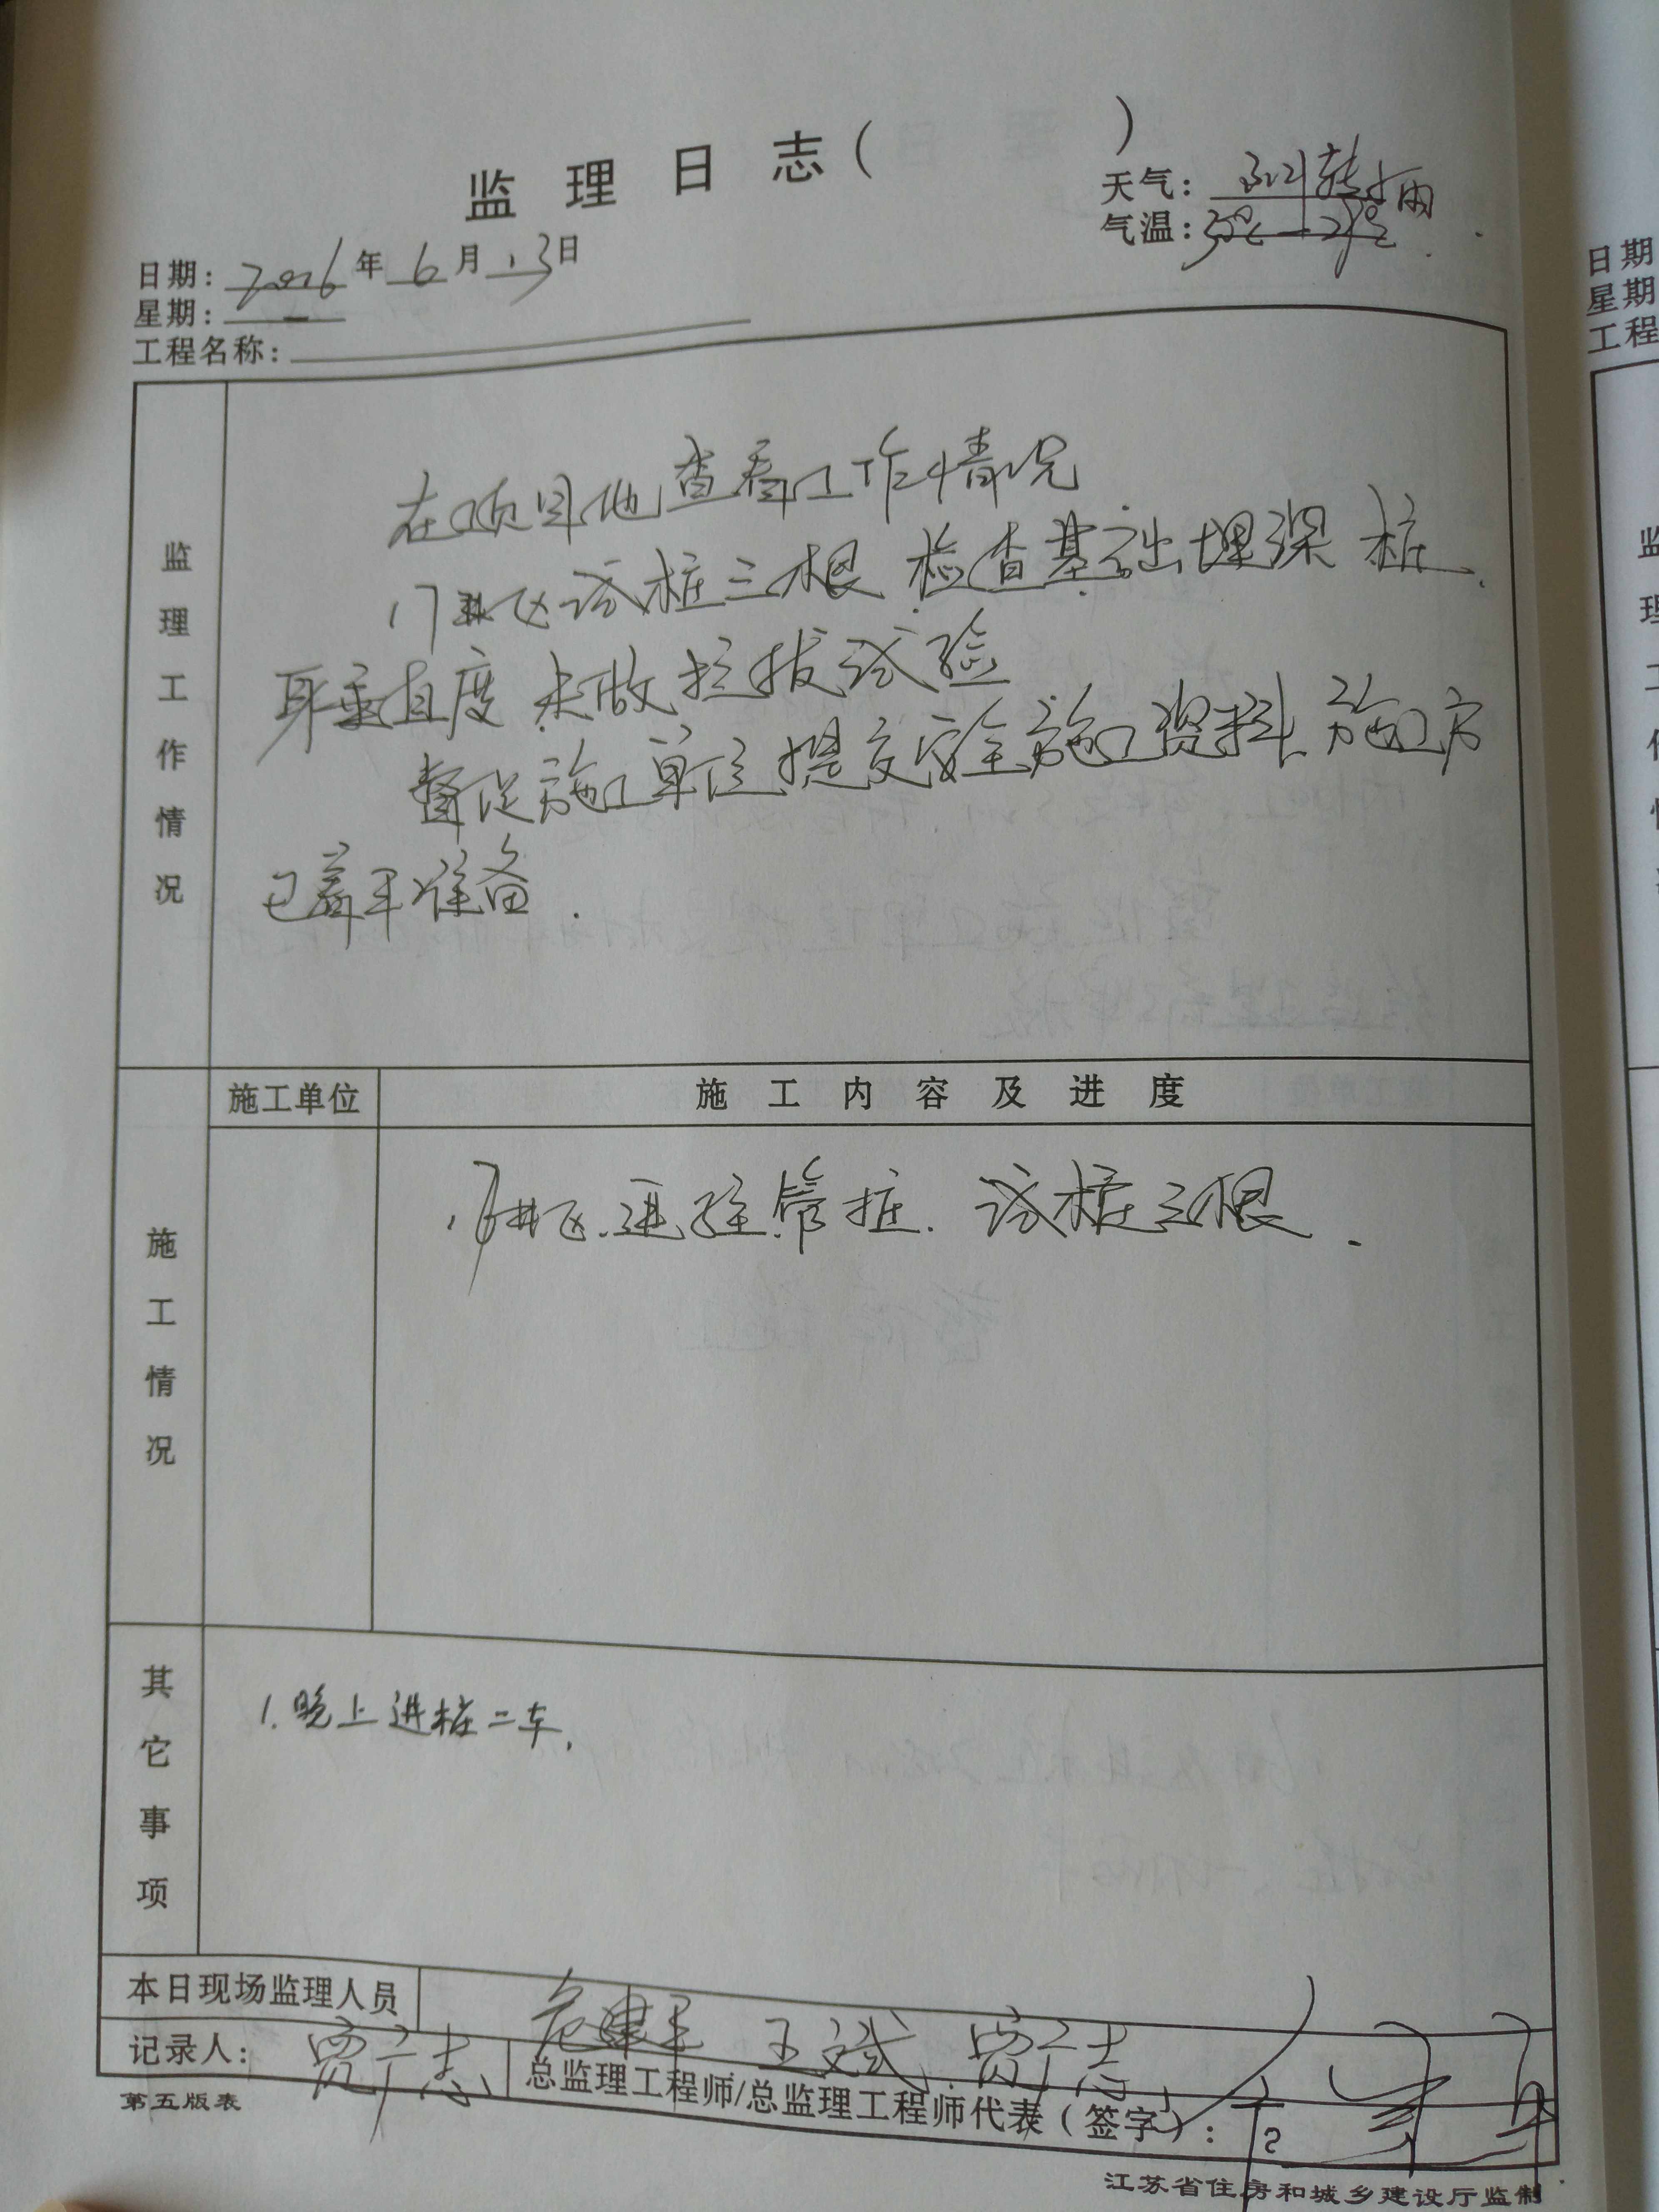 监理日志（ ）
天气：多云转小雨
气温：30℃—21℃
日期：2016年6月13日
星期：一
工程名称：
监理工作情况
在项目地查看工作情况
1#地区试桩三根 检查基础埋深 桩
身垂直度 未做拉拔试验
督促施工单位提交安全施工资料 施工方
已着手准备.
施工单位
施工内容及进度
施工情况
试桩三根.
其它事项
1.晚上进桩二车.
本日现场监理人员 王文斌 贾广志
记录人：贾广志
总监理工程师/总监理工程师代表（签字）：
第五版表
江苏省住房和城乡建设厅监制
日期
星期
工程